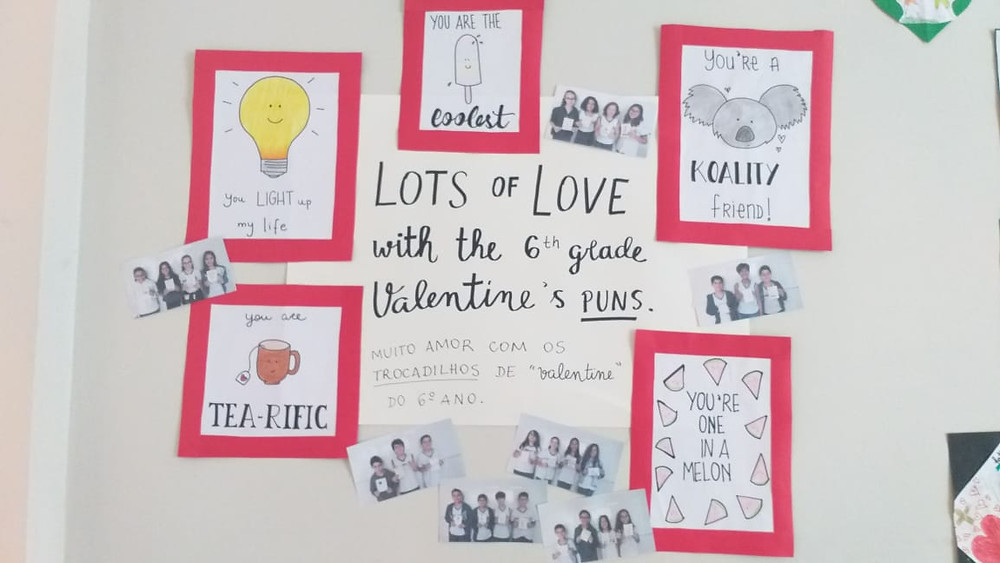 YOU ARE THE
coolest
YOU'RE A
KOALITY
friend!
you LIGHT up
my life
LOTS OF LOVE
with the 6th grade
Valentine's PUNS.
MUITO AMOR COM OS
TROCADILHOS DE "Valentine"
DO 6º ANO.
you are
TEA-RIFIC
YOU'RE
ONE
IN A
MELON